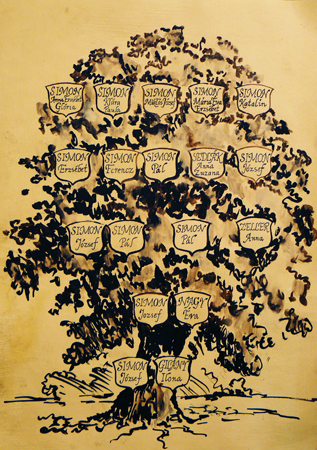 SIMON
Anna Erzsébet
Glória
SIMON
Klára
Paula
SIMON
Miklós József
SIMON
Mária Éva
Erzsébet
SIMON
Katalin
SIMON
Erzsébet
SIMON
Ferencz
SIMON
Pál
SEDLÁK
Anna
Zuzana
SIMON
József
SIMON
József
SIMON
Pál
SIMON
Pál
ZELLER
Anna
SIMON
József
NAGY
Éva
SIMON
József
GILÁNY
Ilona